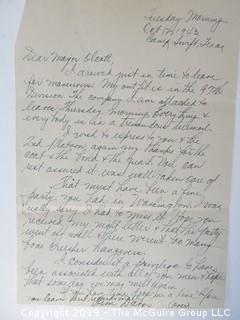 Tuesday Morning
Oct 12, 1943
Camp Swift, Texas
Dear Major Elcott,
I arrived just in time to leave
for maneuvers. My outfit is in the 97th
Division. The company I am attached to
leaves Thursday morning. Everything &
everybody is in a tremendous turmoil.
I wish to express to you & the
2nd Platoon again my thanks for the
coat & the bond & the quart. You can
rest assured it was well taken care of
That must have been a fine
party you had in Washington. I was
really sorry I had to miss it. Hope you
received my night letter & that the party
went off well & there weren't too many
bone crusher hangovers.
I consider it a privilege to have
been associated with all of you men & hope
that some day you may meet again
time drop me a line before
you leave
COPYRIGHT 2019 - PhotosOfThePast.com